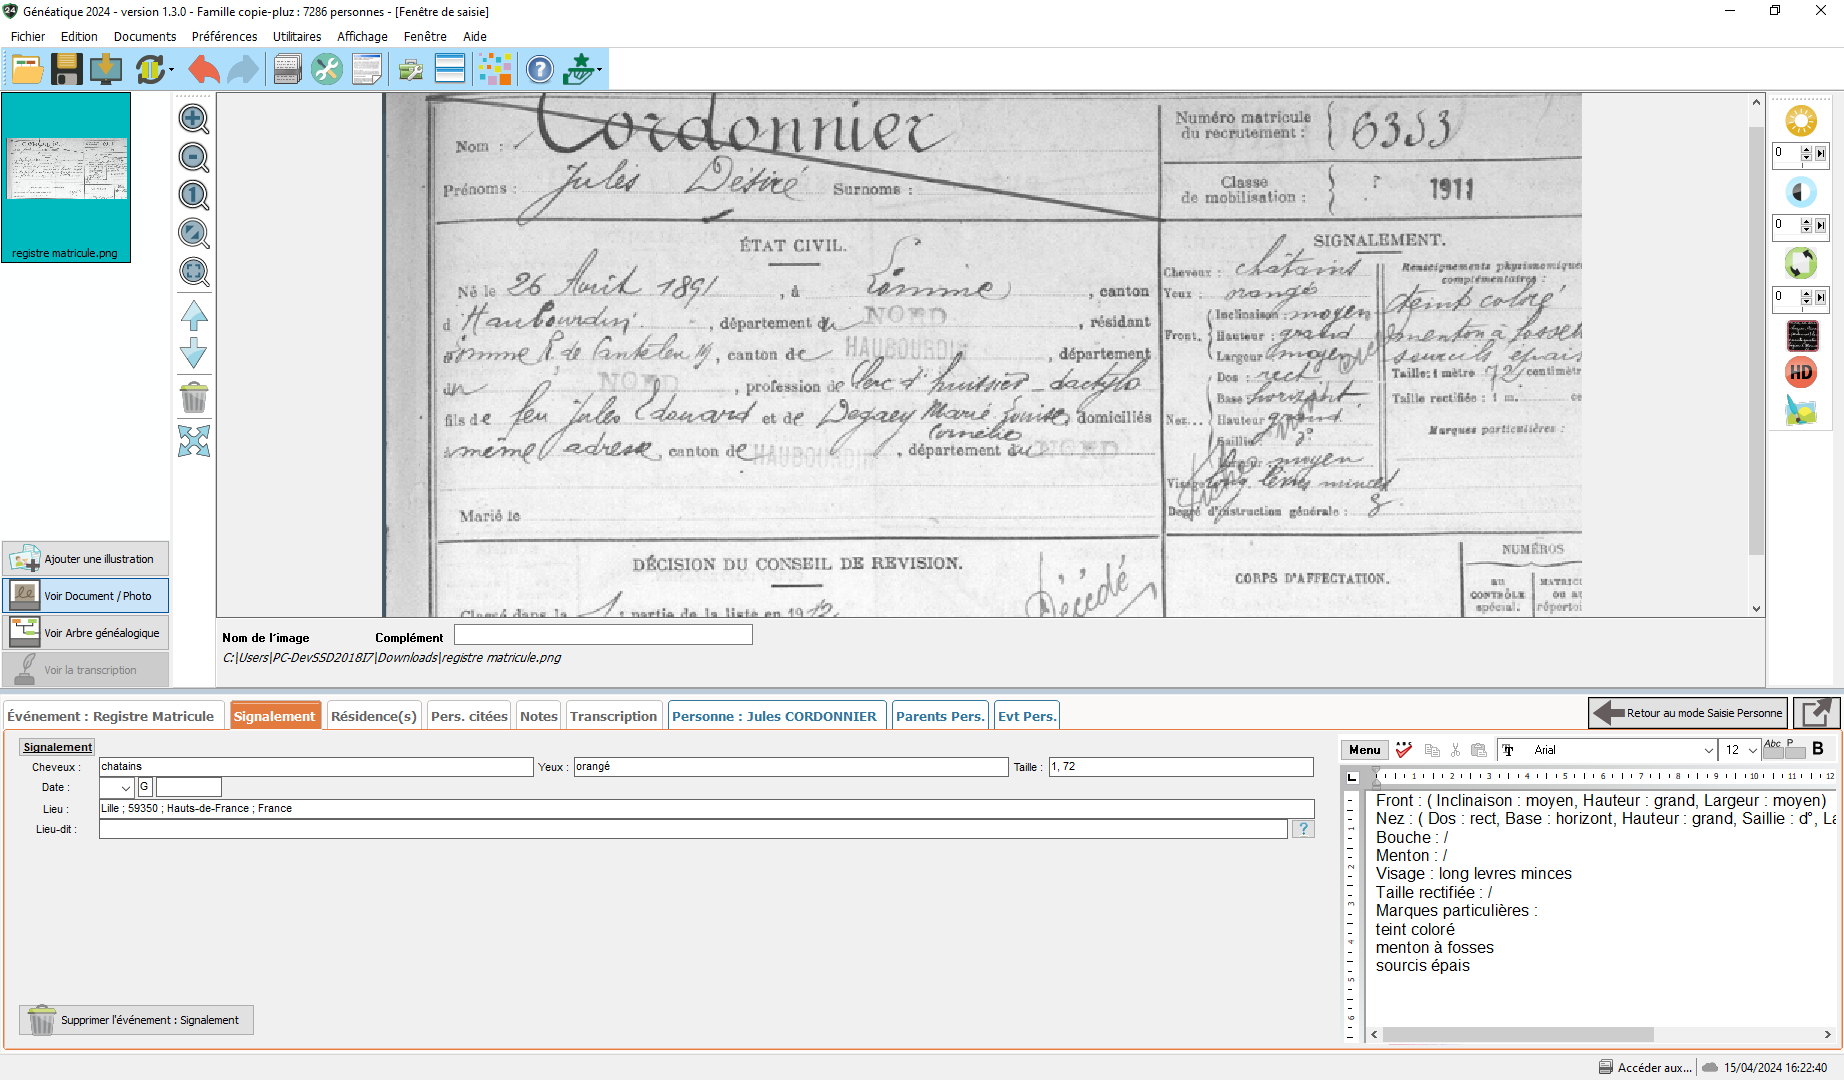 Généatique 2024 - version 1.3.0 - Famille copie-pluz : 7286 personnes - [Fenêtre de saisie]
Fichier Edition Documents Préférences Utilitaires Affichage Fenêtre Aide
registre matricule.png
Nom : Cordonnier
Prénoms : Jules Désiré Surnoms :
Numéro matricule du recrutement : 6353
Classe de mobilisation : 1911
ÉTAT CIVIL.
Né le 26 Août 1891, à Lomme, canton
d'Haubourdin, département du NORD, résidant
Lomme R. de Canteleu 19, canton de HAUBOURDIN, département
du NORD, profession de Clerc d'huissier - dactylo
fils de feu Jules Edouard et de Degaey Marie Louise Cornélie domiciliés
à même adresse, canton de HAUBOURDIN, département du NORD
Marié le
SIGNALEMENT.
Cheveux : châtains
Yeux : orangé
Front. Inclinaison : moyen
Hauteur : grand
Largeur : moyen
Nez... Dos : rect
Base : horizont.
Hauteur : grand
Saillie : d°
Largeur : moyen
Visage : long lèvres minces
Degré d'instruction générale : 3
Renseignements physionomiques
complémentaires :
teint coloré
menton à fosset
sourcils épais
Taille : 1 mètre 72 centimètr
Taille rectifiée : 1 m. ce
Marques particulières :
DÉCISION DU CONSEIL DE REVISION.
Classé dans la 1 : partie de la liste en 1912
Décédé
CORPS D'AFFECTATION.
NUMÉROS
AU
CONTRÔLE
spécial.
MATRICU
OU AU
répertoi
0
0
0
HD
Ajouter une illustration
Voir Document / Photo
Voir Arbre généalogique
Voir la transcription
Nom de l'image Complément
C:\Users\PC-DevSSD2018I7\Downloads\registre matricule.png
Événement : Registre Matricule Signalement Résidence(s) Pers. citées Notes Transcription Personne : Jules CORDONNIER Parents Pers. Evt Pers. Retour au mode Saisie Personne
Signalement
Cheveux : chatains Yeux : orangé Taille : 1, 72
Date : G
Lieu : Lille ; 59350 ; Hauts-de-France ; France
Lieu-dit : ?
Supprimer l'événement : Signalement
Menu ABC Arial 12 Abc P B
1 2 3 4 5 6 7 8 9 10 11 12
Front : ( Inclinaison : moyen, Hauteur : grand, Largeur : moyen)
Nez : ( Dos : rect, Base : horizont, Hauteur : grand, Saillie : d°, La
Bouche : /
Menton : /
Visage : long levres minces
Taille rectifiée : /
Marques particulières :
teint coloré
menton à fosses
sourcis épais
Accéder aux... 15/04/2024 16:22:40